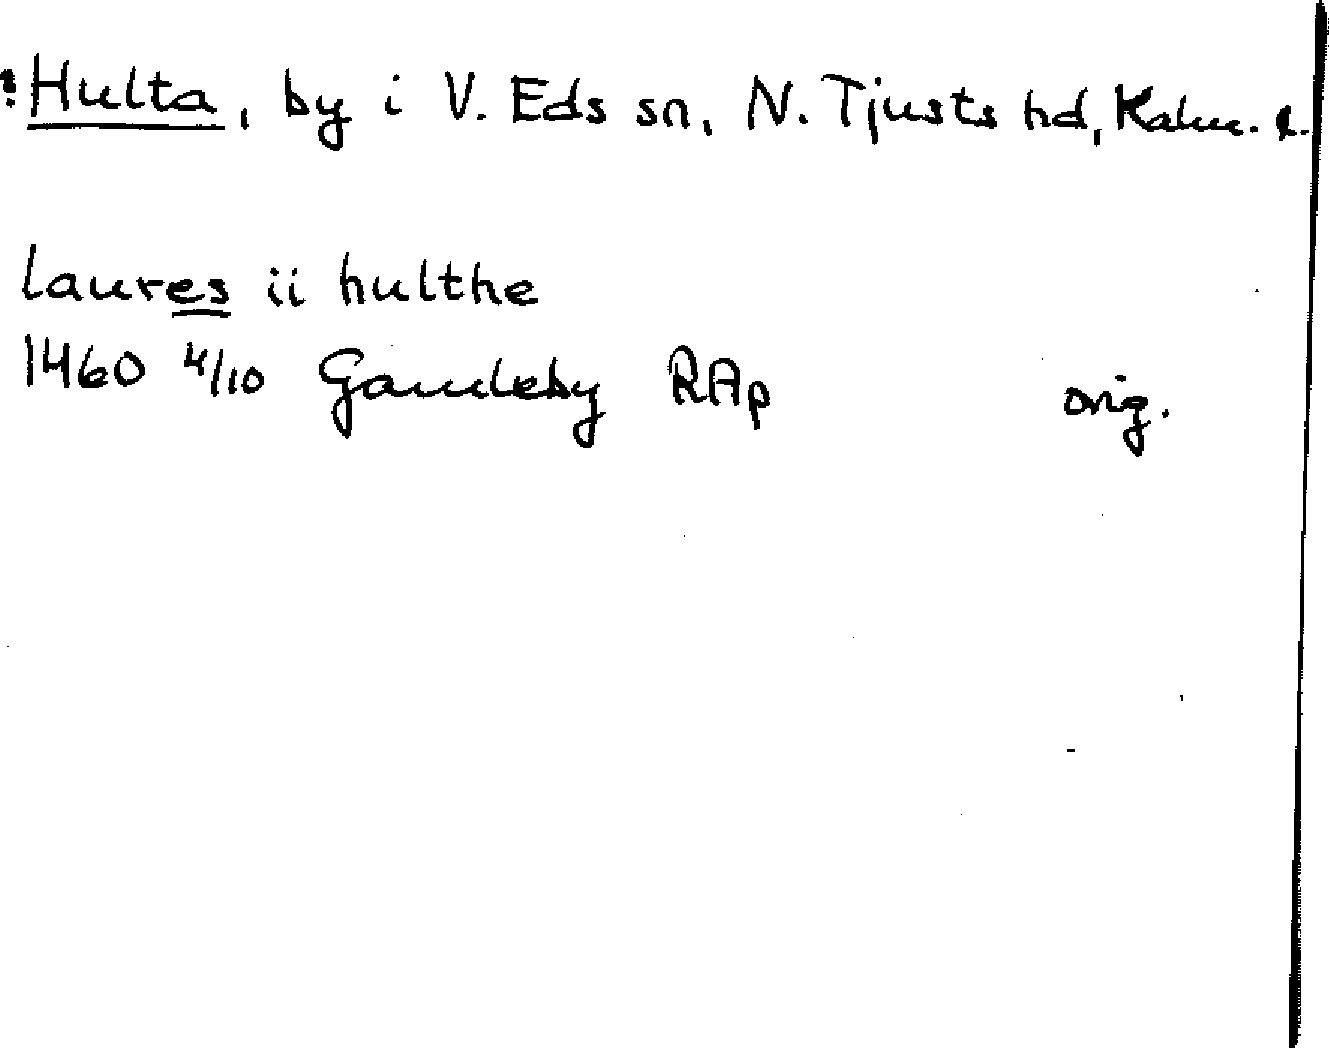 : Hulta, by i V. Eds sn, N. Tjusts hd, Kalm. l.
laures ii hulthe
1460 4/10 Gamleby RAp orig.